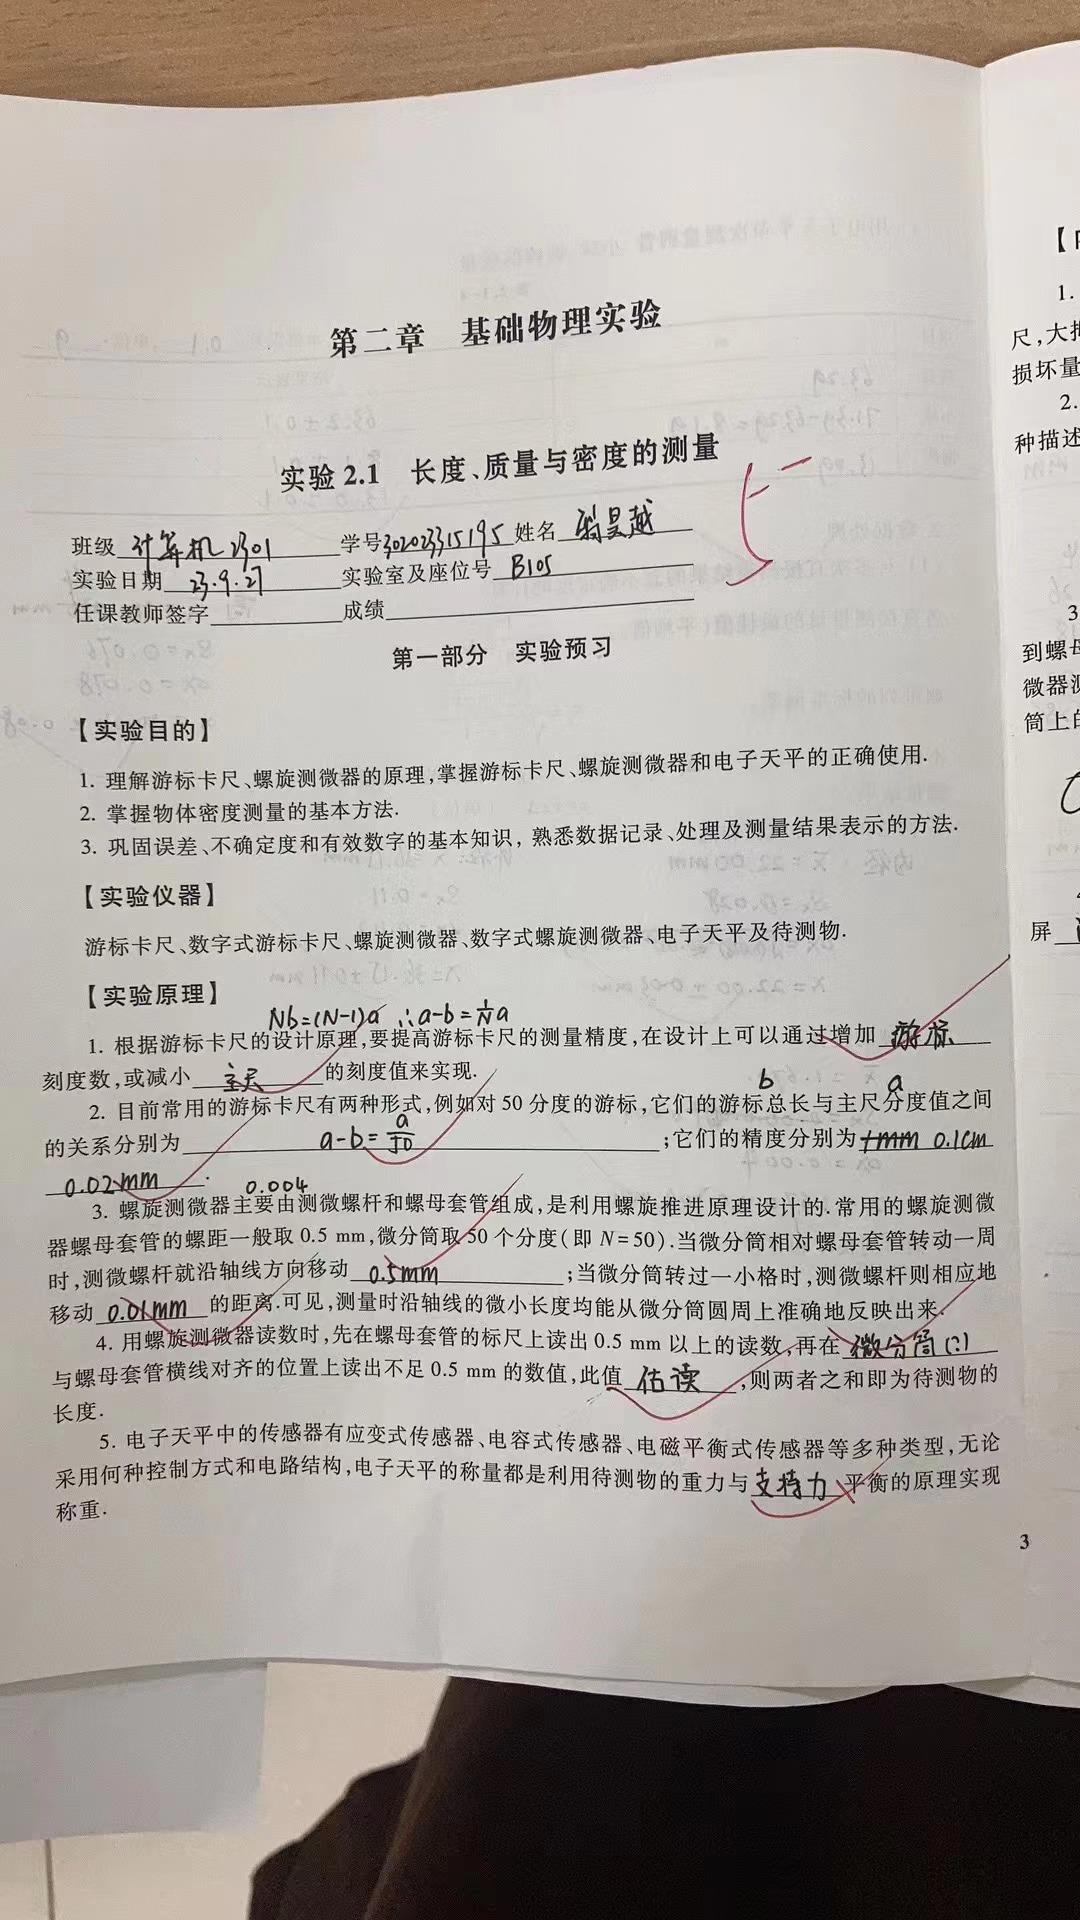 第二章 基础物理实验
实验 2.1 长度、质量与密度的测量
班级 计算机2301 学号 302023315195 姓名 昊越
实验日期 23.9.27 实验室及座位号 B105
任课教师签字 成绩
第一部分 实验预习
【实验目的】
1. 理解游标卡尺、螺旋测微器的原理,掌握游标卡尺、螺旋测微器和电子天平的正确使用.
2. 掌握物体密度测量的基本方法.
3. 巩固误差、不确定度和有效数字的基本知识, 熟悉数据记录、处理及测量结果表示的方法.
【实验仪器】
游标卡尺、数字式游标卡尺、螺旋测微器、数字式螺旋测微器、电子天平及待测物.
【实验原理】
Nb=(N-1)a ∴a-b=1/N a
1. 根据游标卡尺的设计原理,要提高游标卡尺的测量精度,在设计上可以通过增加 游标
刻度数,或减小 主尺 的刻度值来实现.
b a
2. 目前常用的游标卡尺有两种形式,例如对 50 分度的游标,它们的游标总长与主尺分度值之间
的关系分别为 a-b=a/50 ;它们的精度分别为 1mm 0.1cm
0.02mm . 0.004
3. 螺旋测微器主要由测微螺杆和螺母套管组成,是利用螺旋推进原理设计的.常用的螺旋测微
器螺母套管的螺距一般取 0.5 mm,微分筒取 50 个分度(即 N=50).当微分筒相对螺母套管转动一周
时,测微螺杆就沿轴线方向移动 0.5mm ;当微分筒转过一小格时,测微螺杆则相应地
移动 0.01mm 的距离.可见,测量时沿轴线的微小长度均能从微分筒圆周上准确地反映出来.
4. 用螺旋测微器读数时,先在螺母套管的标尺上读出 0.5 mm 以上的读数,再在 微分筒
与螺母套管横线对齐的位置上读出不足 0.5 mm 的数值,此值 估读 ,则两者之和即为待测物的
长度.
5. 电子天平中的传感器有应变式传感器、电容式传感器、电磁平衡式传感器等多种类型,无论
采用何种控制方式和电路结构,电子天平的称量都是利用待测物的重力与 支持力 平衡的原理实现
称重.
3
【
1.
尺,大
损坏量
2.
种描述
3
到螺母
微器测
筒上的
屏